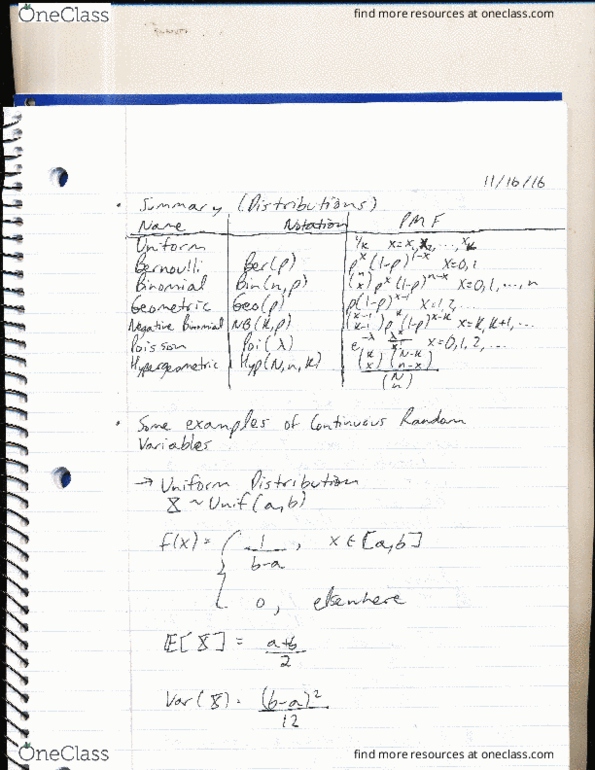 OneClass
find more resources at oneclass.com
11/16/16
• Summary (Distributions)
Name Notation PMF
Uniform 1/k x=x₁,x₂,...,xₖ
Bernoulli Ber(p) pˣ(1-p)¹⁻ˣ x=0,1
Binomial Bin(n,p) (n x) pˣ(1-p)ⁿ⁻ˣ x=0,1,...,n
Geometric Geo(p) p(1-p)ˣ⁻¹ x=1,2,...
Negative Binomial NB(k,p) (x-1 k-1) pᵏ(1-p)ˣ⁻ᵏ x=k,k+1,...
Poisson Poi(λ) e^-λ λˣ/x! x=0,1,2,...
Hypergeometric Hyp(N,n,k) (k x)(N-k n-x)
(N n)
• Some examples of Continuous Random
Variables
→ Uniform Distribution
X ~ Unif(a,b)
f(x) = { 1/(b-a), x ∈ [a,b]
0, elsewhere
E[X] = (a+b)/2
Var(X) = (b-a)²/12
OneClass
find more resources at oneclass.com